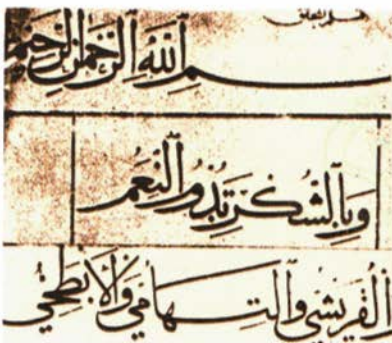 بسم الله الرحمن الرحيم
وبالشكر تدوم النعم
القريشي والتهامي والأبطحي